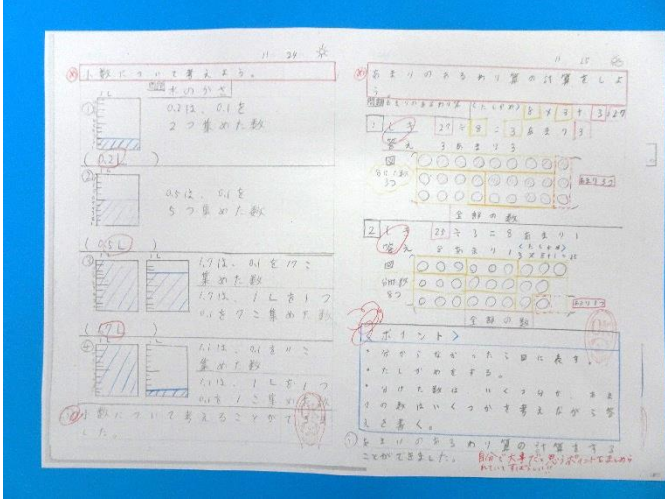 11 - 24
小数について考えよう。
問題 水のかさ
① 1L
0.2は、0.1を
2つ集めた数
(0.2L)
② 1L
0.5は、0.1を
5つ集めた数
(0.5L)
③ 1L 1L
1.7は、0.1を17こ
集めた数
1.7は、1Lを1つ
0.1を7こ集めた数
(1.7L)
④
1.1は、0.1を11こ
集めた数
1.1は、1Lを1つ
0.1を1こ集めた数
小数について考えることができま
した。
11 - 25
あまりのあるわり算の計算をしよ
う。
1 しき 27÷8=3あまり3
答え 3あまり3
図
全部の数
2 しき 25÷3=8あまり1
答え 8あまり1
(たしかめ)
図
全部の数
<ポイント>
・分からなかったら図に表す。
・たしかめをする。
・分けた数は、いくつ分か、あま
りの数はいくつかを考えながら答
えを書く。
あまりのあるわり算の計算をする
ことができました。
自分で大事だと思うポイントをまとめら
れていてすばらしい!!